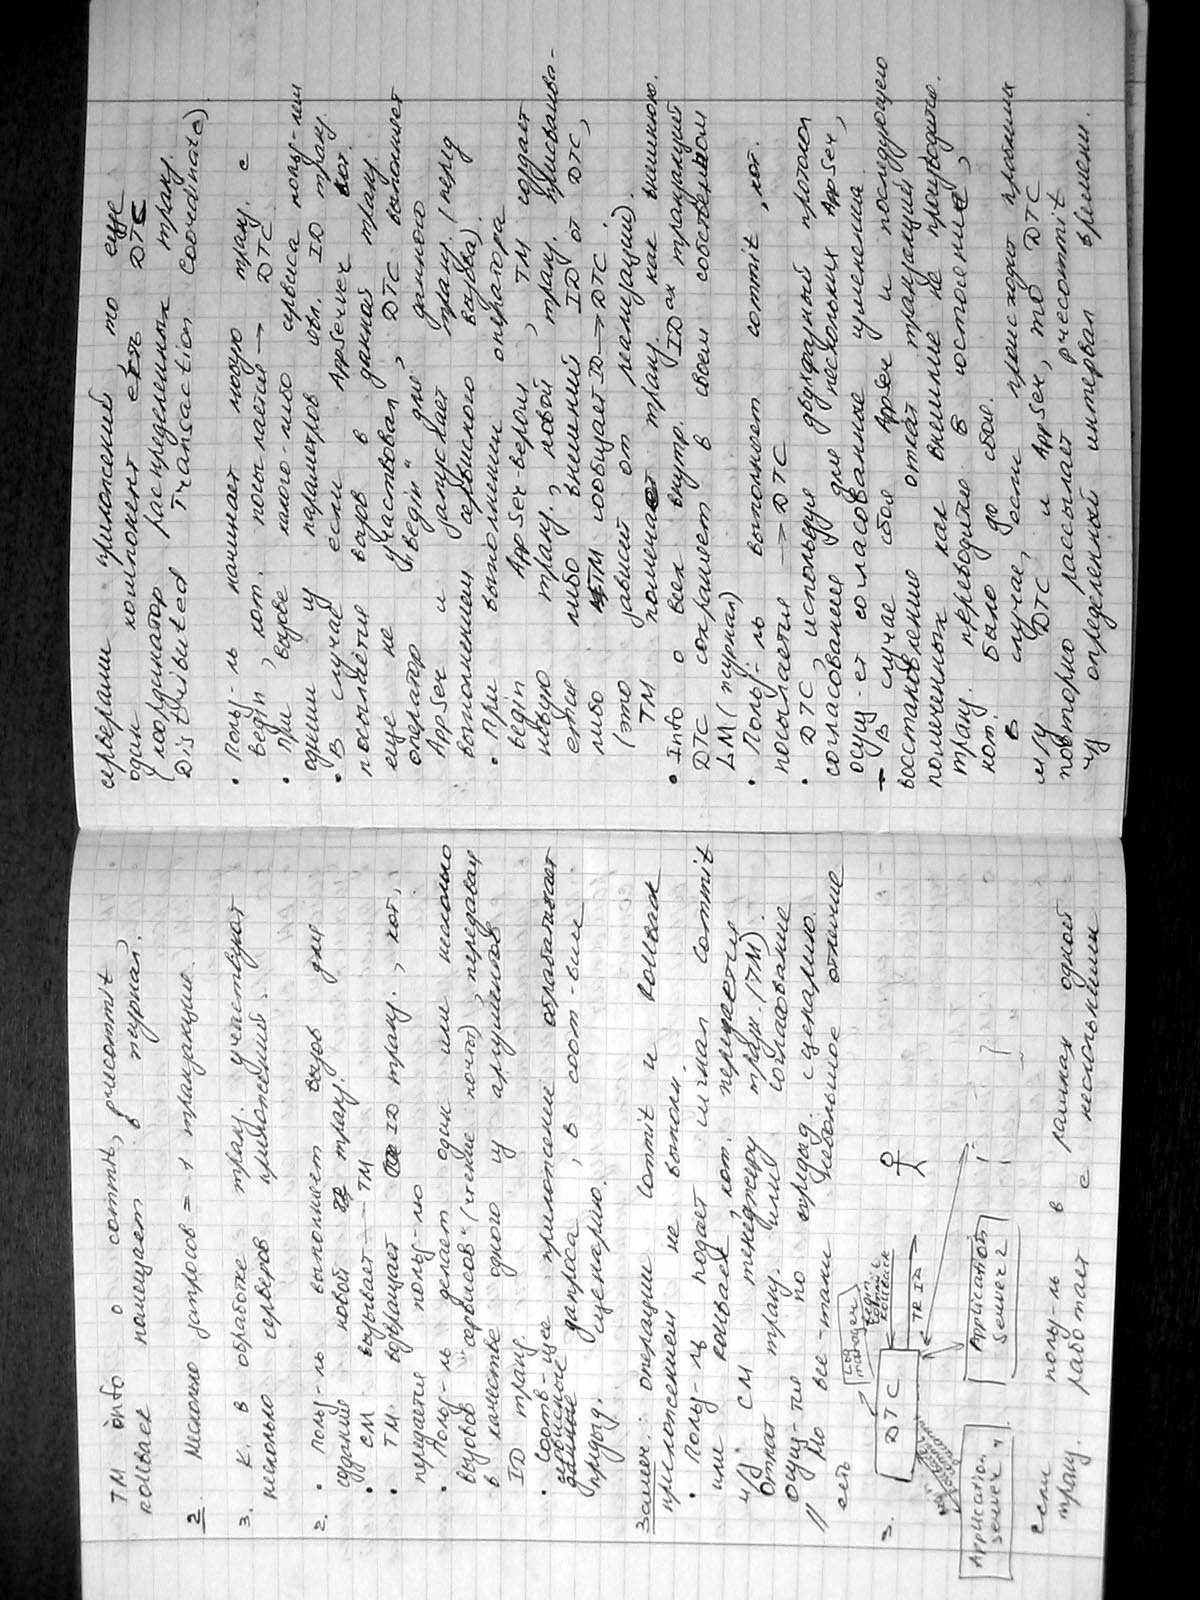 TM info о commit, rollback помещает в журнал.
2. Несколько запросов = 1 транзакция.
3. К. в обработке транз. участвуют
несколько серверов приложений.
2. • Польз-ль выполняет вызов для
создание новой транз.
• СМ вызывает → TM
• TM возвращает ID транз., кот.
передается польз-лю
• Польз-ль делает один или несколько
вызовов "сервисов" (чтение почты), передавая
в качестве одного из аргументов
ID транз.
• Соотв-щее приложение обрабатывает
запроса, в соот-вии
придыд. сценарию.
Замеч.: операции commit и Rollback
приложением не выполн.
• Польз-ль подает сигнал commit
или rollback, кот. передается
ч/з СМ менеджеру транз. (TM).
Откат транз. или согласование
осущ-тся по предыд. сценарию.
// Но все-таки небольшое отличие
есть
3.
Log
manager
Begin
commit
rollback
DTC
TR ID
Application
server 1
Application
server 2
если польз-ль в рамках одной
транз. работает с несколькими
серверами приложений то еще
один компонент есть DTC
(координатор распределенных транз.
Distributed Transaction Coordinate).
• Польз-ль начинает новую транз. с
begin, кот. посылается → DTC.
• При вызове какого-либо сервиса польз-лем
одним из параметров явл. ID транз.
• В случае если AppServer кот.
посылается вызов в данной транз.
еще не участвовал, DTC выполняет
оператор "begin" для данного
AppSer и запускает транз. (перед
выполнением сервисного вызова)
• При выполнении оператора
begin AppSer-вером, TM создает
новую транз., новой транз. присваива-
ется либо внешний ID от DTC,
либо TM сообщает ID → DTC.
(это зависит от реализации).
TM помечает транз. как внешнюю.
• Info о всех внутр. ID ах транзакций
DTC сохраняет в своем собственном
LM (журнал)
• Польз-ль выполняет commit, кот.
посылается → DTC
• DTC, используя двухфазный протокол
согласования для нескольких AppSer,
осущ-ет согласованные изменения.
– В случае сбоя AppSer и последующего
восстановлению откат транзакций
помеченных как внешние не производится.
транз. переводится в состояние,
кот. было до сбоя.
В случае, если происходит
м/у DTC и AppSer, то DTC
повторно рассылает
ч/з определенный интервал времени.